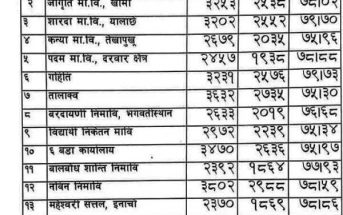 २ जागृति मा.वि., खौमा ३२५३ २५५२ ७८।०२
३ शारदा मा.वि., यालाछें ३२०२ २५५२ ७९।७०
४ कन्या मा.वि., तेखापुखू २६७९ २०३५ ७५।९६
५ पदम मा.वि., दरवार क्षेत्र २४५७ १९३८ ७८।८८
६ गाहिति ३२३१ २५७६ ७९।७३
७ तालाक्व ३६३२ २७३५ ७५।३०
८ बरदायणी निमावि, भगवतीस्थान २६३३ २०१९ ७६।६८
९ विद्यार्थी निकेतन मावि २९७२ २२३९ ७५।३४
१० ६ वडा कार्यालय ३४७० २६३६ ७५।९७
११ बालबोध शान्ति निमावि २३९२ १८६४ ७७।९३
१२ नविन निमावि ३८०२ २९८८ ७८।५९
१३ महेश्वरी सत्तल, इनाचो २३७० १८६९ ७८।८६